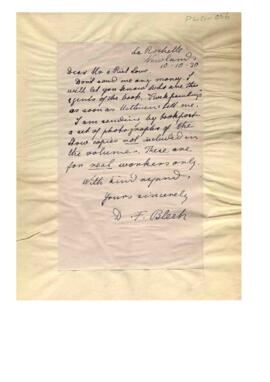 La Rochelle
Newlands
10-10-30
Dear Mr & Piet Low
Don't send me any money. I
will let you know who are the
agents of the book,
as soon as Methuen's tell me.
I am sending by bookpost
a set of photographs of the
Stow copies not included in
the volumes. These are
for real workers only.
With kind regards
Yours sincerely
D. F. Bleek